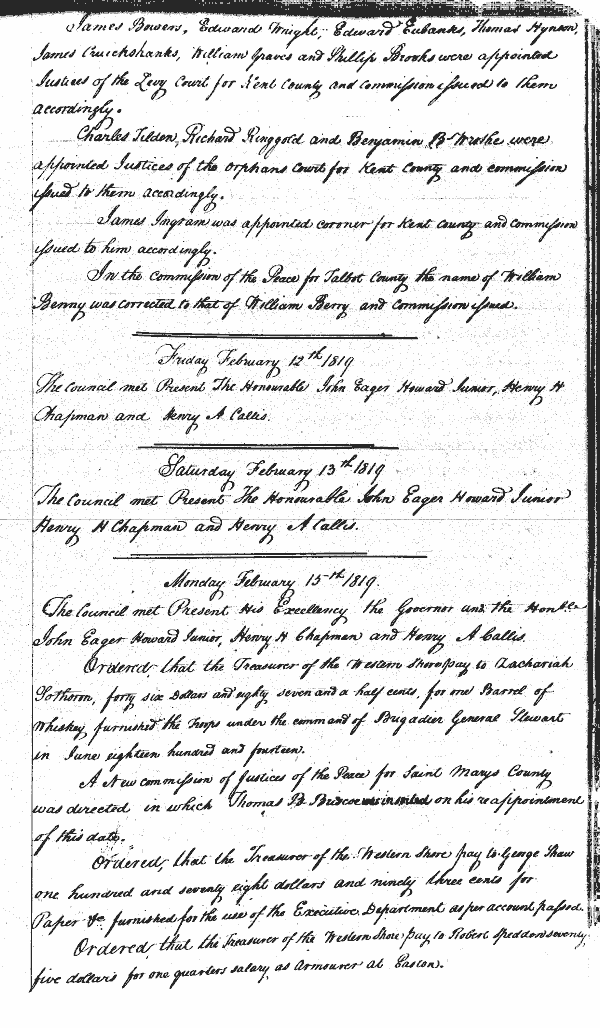 James Bowers, Edward Wright, Edward Eubanks, Thomas Hynson,
James Cruickshanks, William Graves and Phillip Brooks were appointed
Justices of the Levy Court for Kent County and commission issued to them
accordingly.
Charles Tilden, Richard Ringgold and Benjamin B Wrothe were
appointed Justices of the Orphans Court for Kent County and commission
issued to them accordingly.
James Ingram was appointed coroner for Kent County and commission
issued to him accordingly.
In the commission of the Peace for Talbot County the name of William
Benny was corrected to that of William Berry and commission issued.
Friday February 12th 1819
The Council met Present The Honourable John Eager Howard Junior, Henry H
Chapman and Henry A Callis.
Saturday February 13th 1819
The Council met Present The Honourable John Eager Howard Junior
Henry H Chapman and Henry A Callis.
Monday February 15th 1819.
The Council met Present His Excellency the Governor and the Honble
John Eager Howard Junior, Henry H Chapman and Henry A Callis.
Ordered, that the Treasurer of the Western Shore pay to Zachariah
Sothoron, forty six Dollars and eighty seven and a half cents, for one Barrel of
Whiskey furnished the troops under the command of Brigadier General Stewart
in June eighteen hundred and fourteen.
A New commission of Justices of the Peace for Saint Marys County
was directed in which Thomas B. Briscoe was inserted on his reappointment
of this date.
Ordered, that the Treasurer of the Western Shore pay to George Shaw
one hundred and seventy eight dollars and ninety three cents for
Paper &c. furnished for the use of the Executive Department as per account passed.
Ordered, that the Treasurer of the Western Shore pay to Robert Spedden seventy
five dollars for one quarters salary as Armourer at Easton.